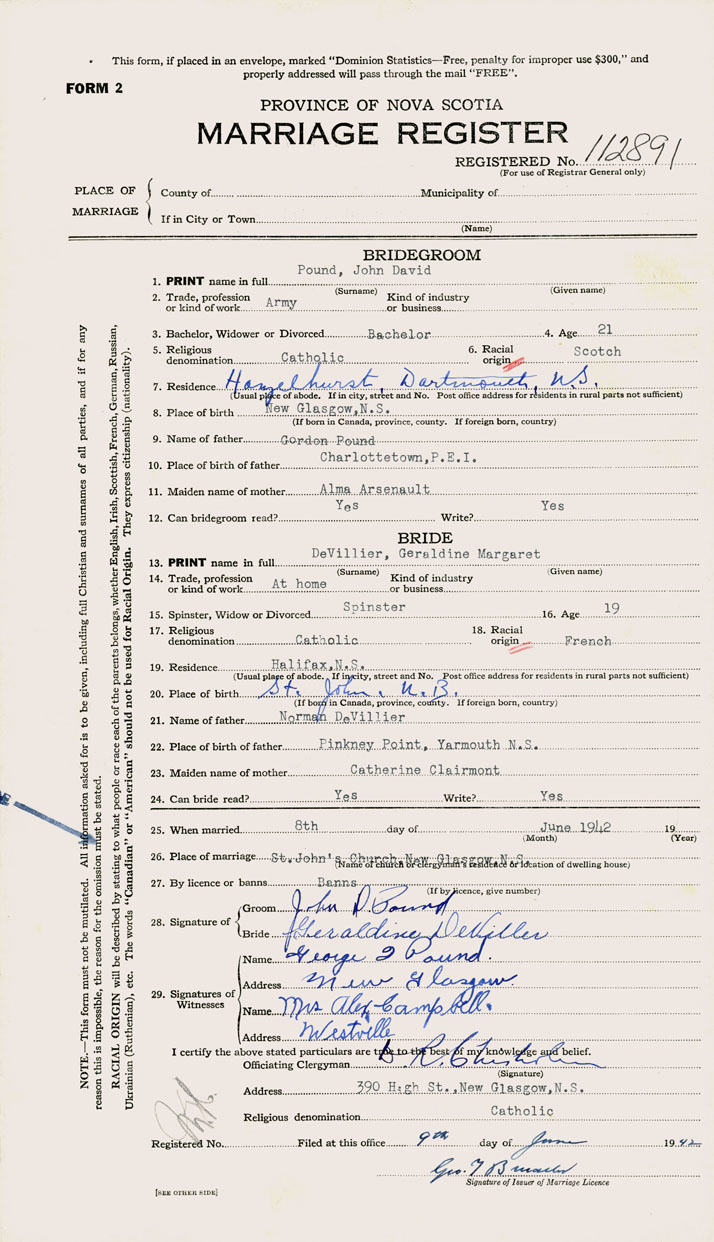 This form, if placed in an envelope, marked "Dominion Statistics—Free, penalty for improper use $300," and
properly addressed will pass through the mail "FREE".
FORM 2
PROVINCE OF NOVA SCOTIA
MARRIAGE REGISTER
REGISTERED No. 112891
(For use of Registrar General only)
PLACE OF MARRIAGE
County of Municipality of
If in City or Town
(Name)
BRIDEGROOM
1. PRINT name in full Pound, John David
(Surname) (Given name)
2. Trade, profession or kind of work Army Kind of industry or business
3. Bachelor, Widower or Divorced Bachelor 4. Age 21
5. Religious denomination Catholic 6. Racial origin Scotch
7. Residence Hazelhurst, Dartmouth, N.S.
(Usual place of abode. If in city, street and No. Post office address for residents in rural parts not sufficient)
8. Place of birth New Glasgow,N.S.
(If born in Canada, province, county. If foreign born, country)
9. Name of father Gordon Pound
10. Place of birth of father Charlottetown,P.E.I.
11. Maiden name of mother Alma Arsenault
12. Can bridegroom read? Yes Write? Yes
BRIDE
13. PRINT name in full DeVillier, Geraldine Margaret
(Surname) (Given name)
14. Trade, profession or kind of work At home Kind of industry or business
15. Spinster, Widow or Divorced Spinster 16. Age 19
17. Religious denomination Catholic 18. Racial origin French
19. Residence Halifax,N.S.
(Usual place of abode. If in city, street and No. Post office address for residents in rural parts not sufficient)
20. Place of birth St. John, N.B.
(If born in Canada, province, county. If foreign born, country)
21. Name of father Norman DeVillier
22. Place of birth of father Pinkney Point, Yarmouth N.S.
23. Maiden name of mother Catherine Clairmont
24. Can bride read? Yes Write? Yes
25. When married 8th day of June 1942 19
(Month) (Year)
26. Place of marriage St.John's Church,New Glasgow,N.S.
(Name of church or clergyman's residence or location of dwelling house)
27. By licence or banns Banns
(If by licence, give number)
28. Signature of
Groom John D Pound
Bride Geraldine DeVillier
29. Signatures of Witnesses
Name George J Pound.
Address New Glasgow.
Name Mrs Alex Campbell.
Address Westville
I certify the above stated particulars are true to the best of my knowledge and belief.
Officiating Clergyman R. Chisholm
(Signature)
Address 390 High St.,New Glasgow,N.S.
Religious denomination Catholic
Registered No. Filed at this office 9th day of June 1942
Geo.
Signature of Issuer of Marriage Licence
[SEE OTHER SIDE]
NOTE.—This form must not be mutilated. All information asked for is to be given, including full Christian and surnames of all parties, and if for any
reason this is impossible, the reason for the omission must be stated.
RACIAL ORIGIN will be described by stating to what people or race each of the parents belongs, whether English, Irish, Scottish, French, German, Russian,
Ukrainian (Ruthenian), etc. The words "Canadian" or "American" should not be used for Racial Origin. They express citizenship (nationality).